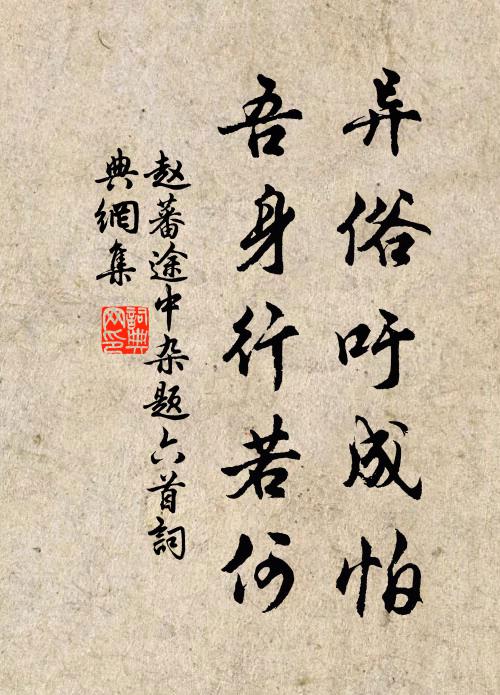 异俗吁成怕
吾身行若何
赵蕃途中杂题六首詞
典網集
詞典
网印